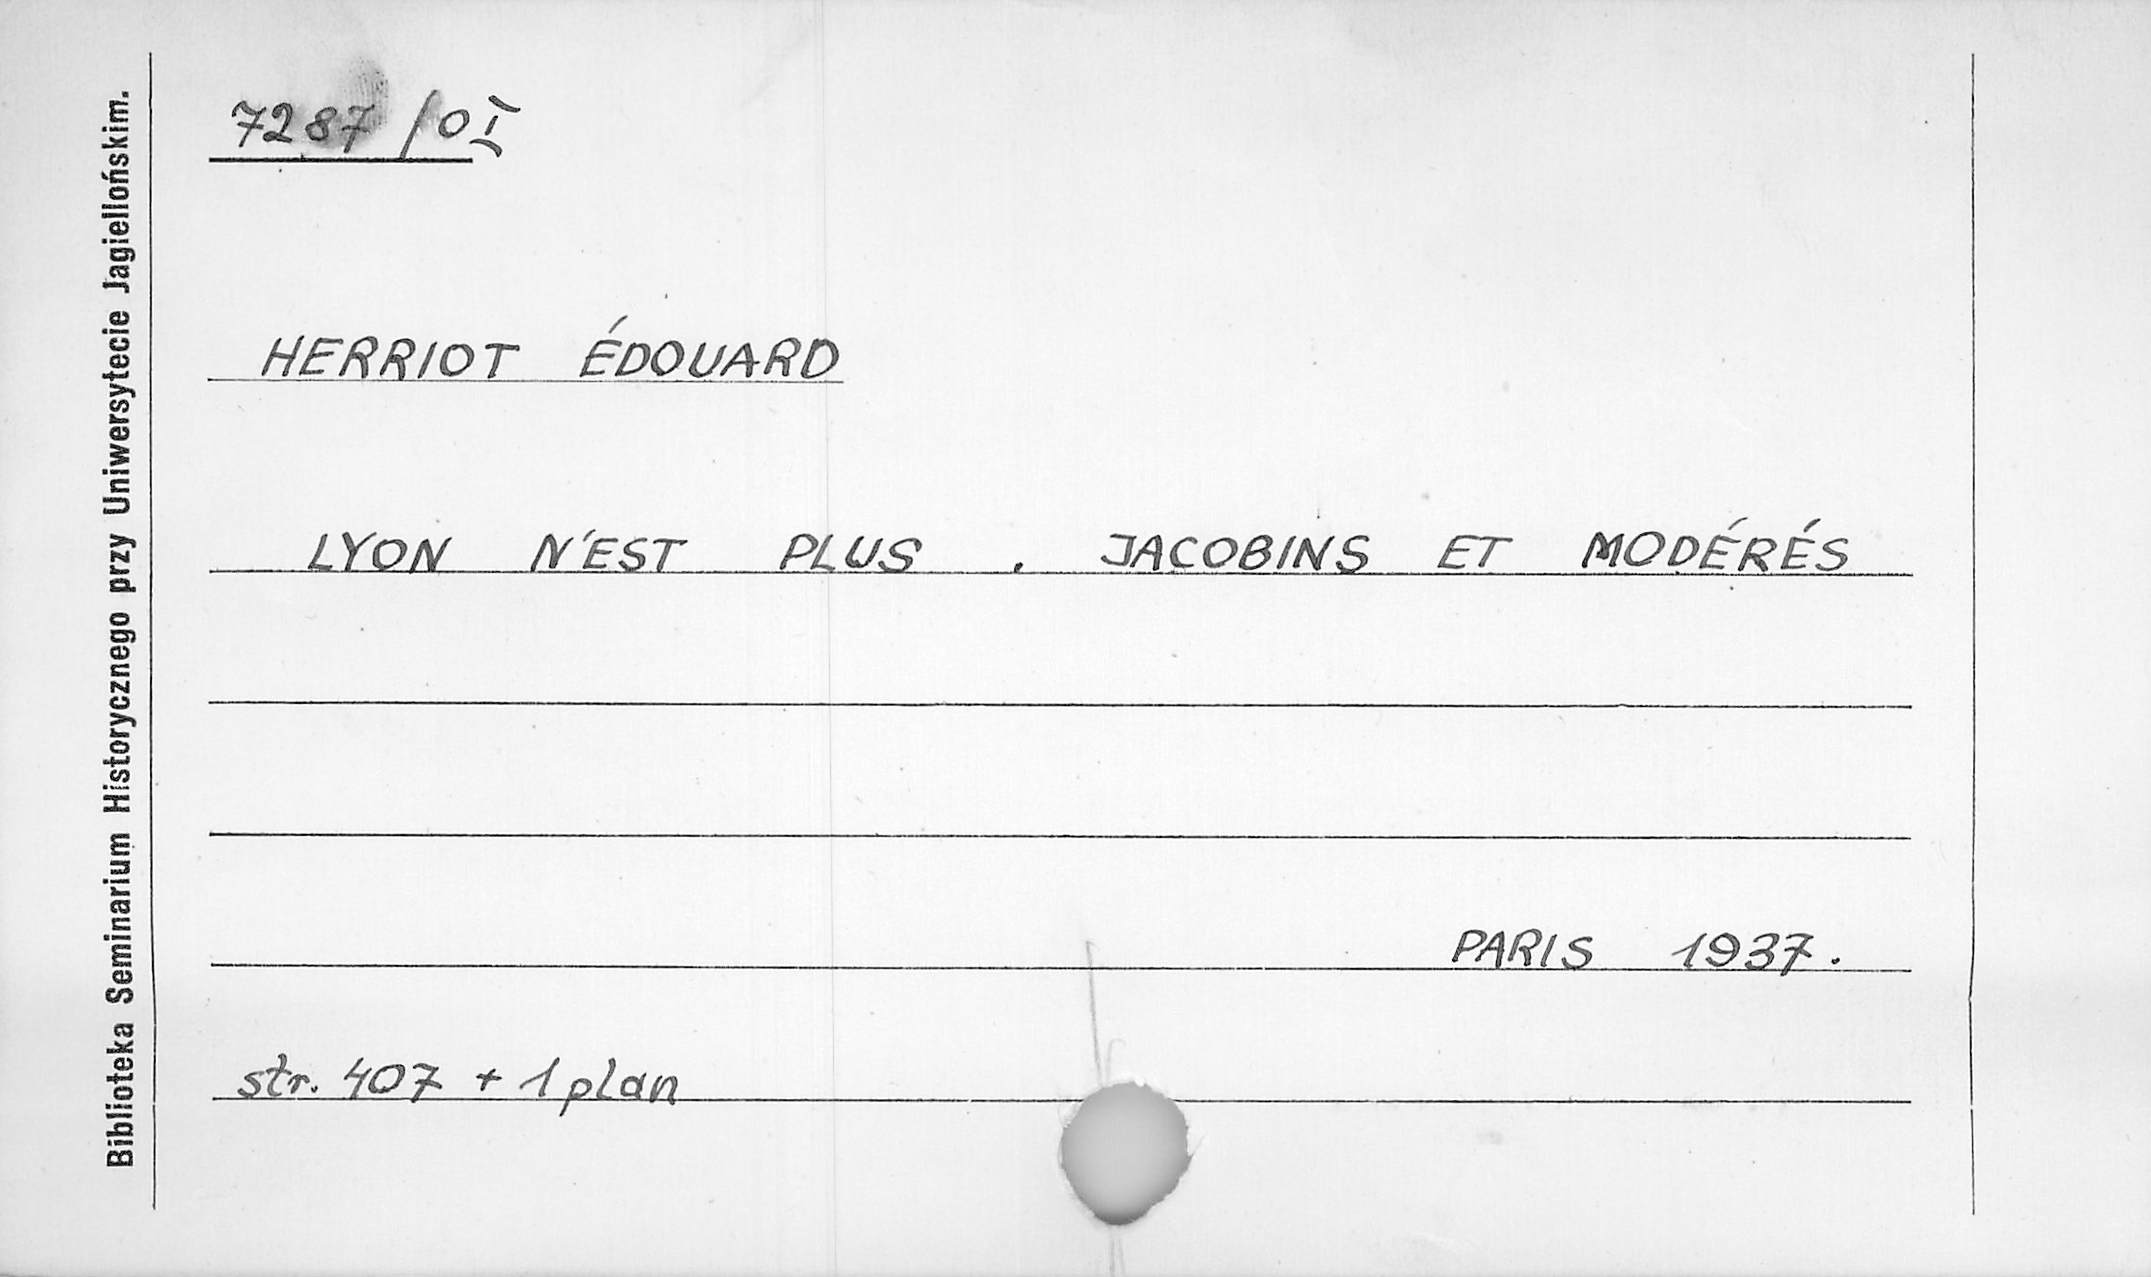 7287/OI
HERRIOT ÉDOUARD
LYON N'EST PLUS . JACOBINS ET MODÉRÉS
PARIS 1937.
str. 407 + 1 plan
Biblioteka Seminarium Historycznego przy Uniwersytecie Jagiellońskim.